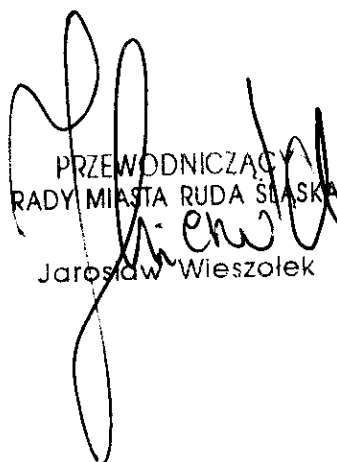 PRZEWODNICZĄCY
RADY MIASTA RUDA ŚLĄSKA
Jarosław Wieszołek